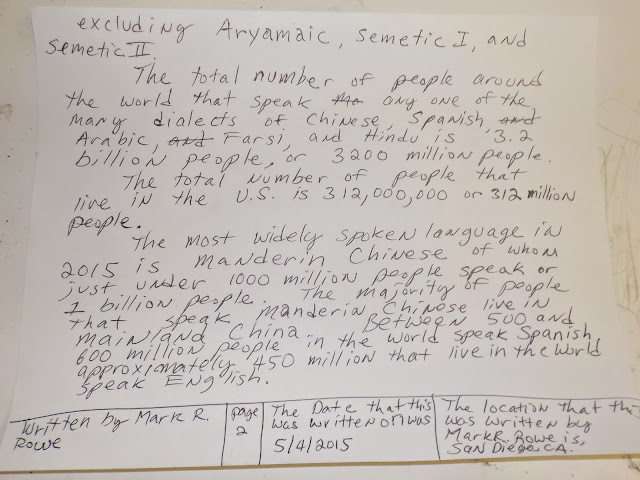 excluding Aryamaic, Semetic I, and
Semetic II.
The total number of people around
the world that speak the any one of the
many dialects of Chinese, Spanish and
Arabic, and Farsi, and Hindu is 3.2
billion people, or 3200 million people.
The total number of people that
live in the U.S. is 312,000,000 or 312 million
people.
The most widely spoken language in
2015 is Manderin Chinese of whom
just under 1000 million people speak or
1 billion people. The majority of people
that speak Manderin Chinese live in
mainland China. Between 500 and
600 million people in the world speak Spanish
approxiamately 450 million that live in the world
speak English.
Written by Mark R.
Rowe
page
2
The Date that this
was written on was
5/4/2015
The location that this
was written by
Mark R. Rowe is,
San Diego, CA.